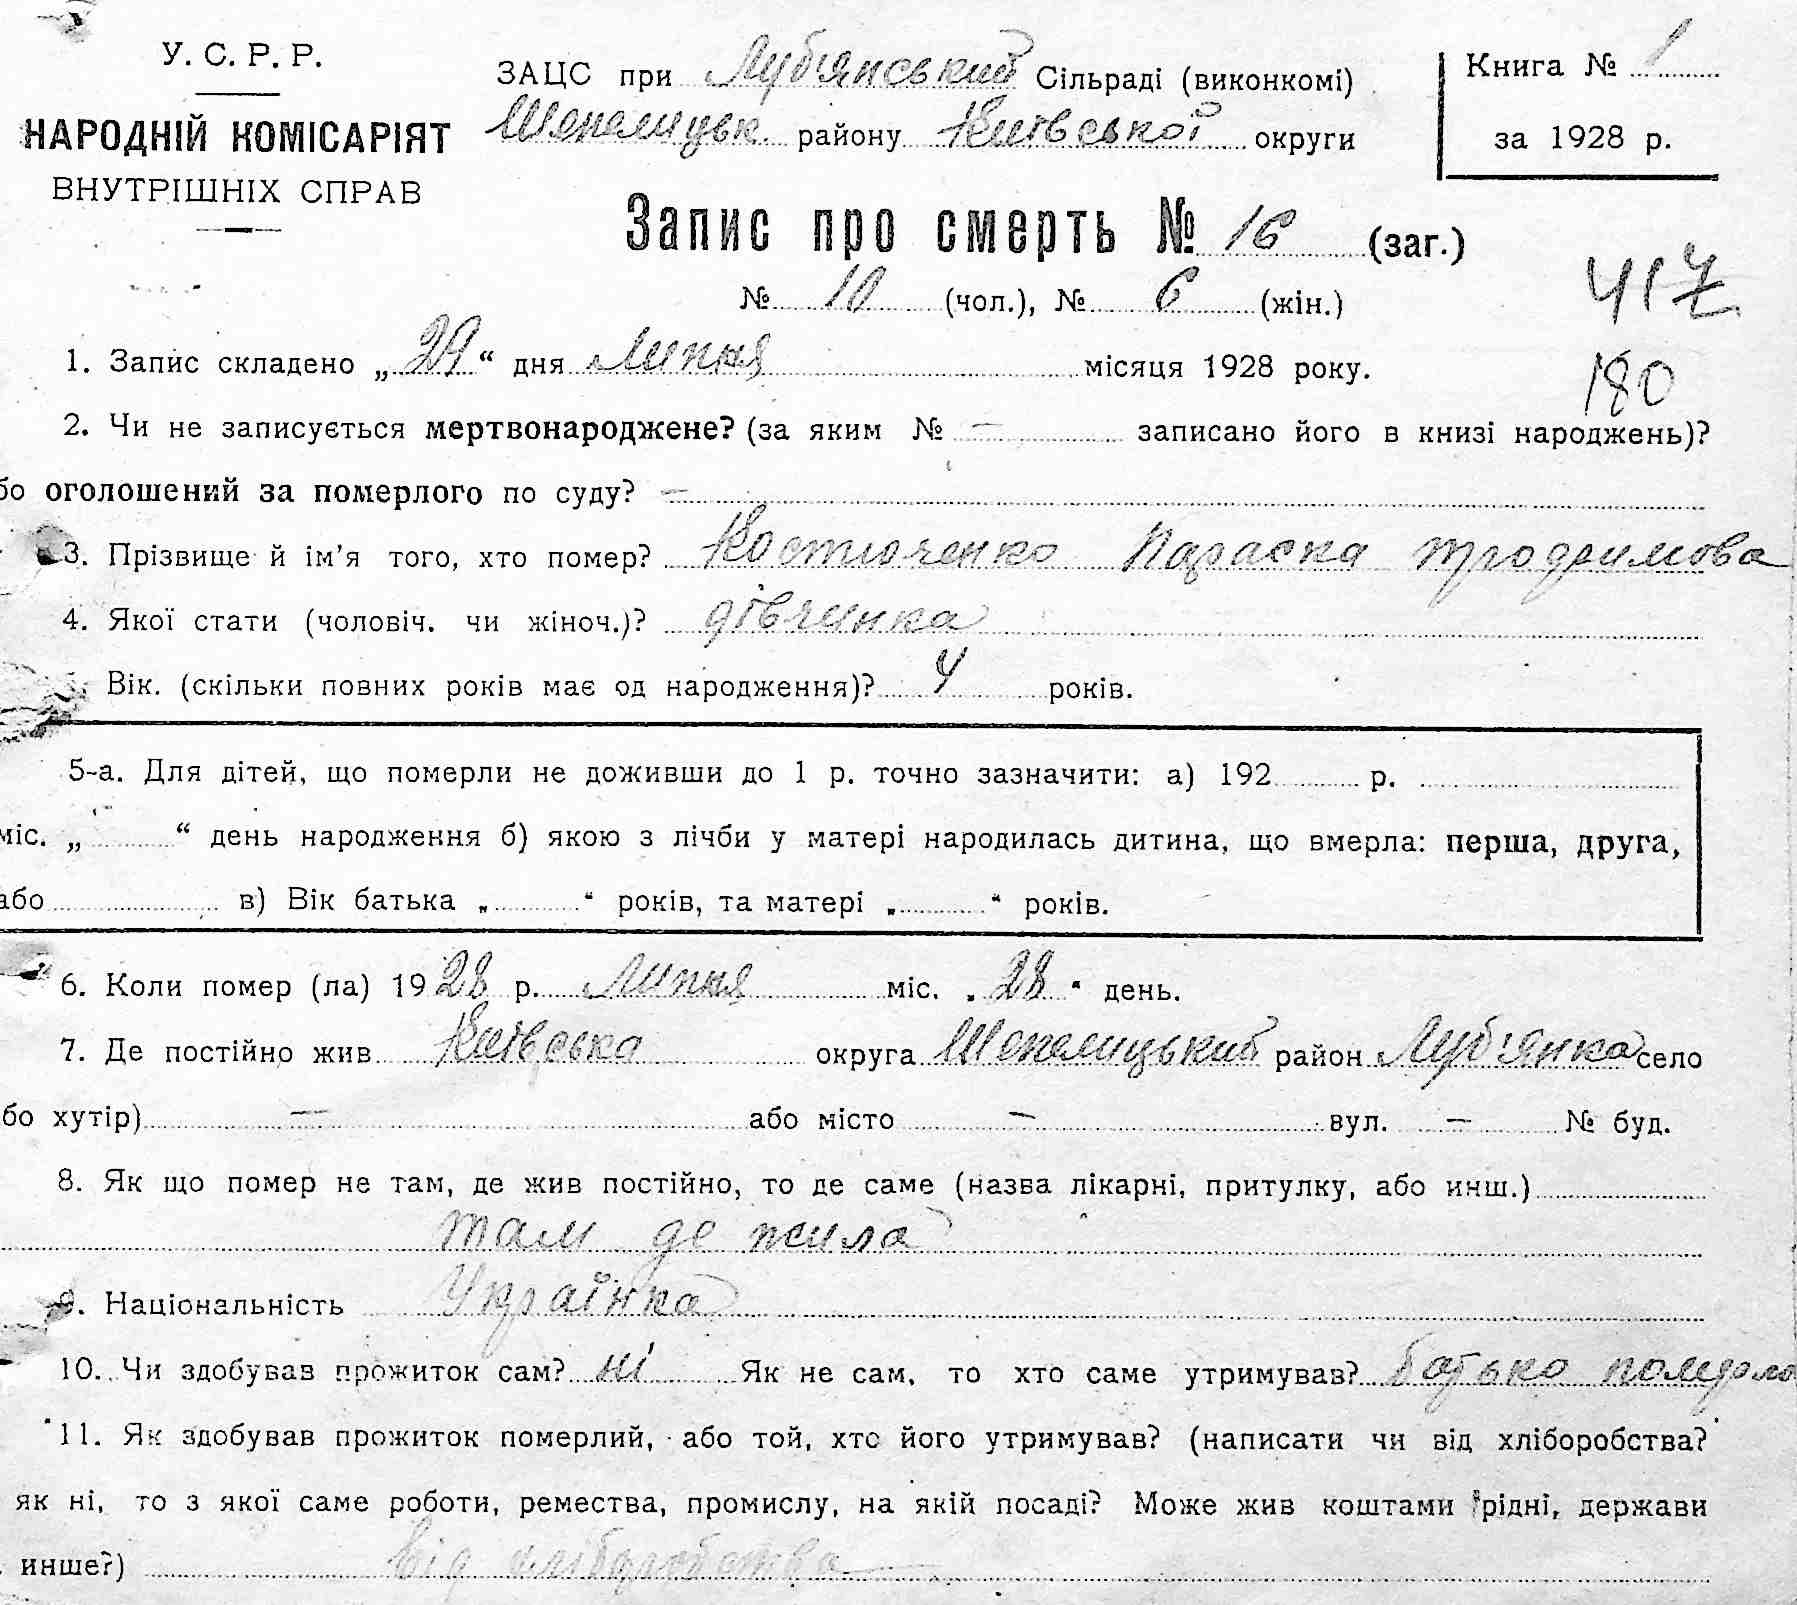 У. С. Р. Р.
НАРОДНІЙ КОМІСАРІЯТ
ВНУТРІШНІХ СПРАВ
ЗАЦС при Лубянський Сільраді (виконкомі)
Шепелицьк. району Київської округи
Книга № 1
за 1928 р.
Запис про смерть № 16 (заг.)
№ 10 (чол.), № 6 (жін.)
417
1. Запис складено „29“ дня Липня місяця 1928 року.
180
2. Чи не записується мертвонароджене? (за яким № — записано його в книзі народжень)?
бо оголошений за померлого по суду? —
3. Прізвище й ім’я того, хто помер? Костюченко Параска
4. Якої стати (чоловіч. чи жіноч.)? дівчинка
Вік. (скільки повних років має од народження)? 4 років.
5-а. Для дітей, що померли не доживши до 1 р. точно зазначити: а) 192 р.
міс. „ “ день народження б) якою з лічби у матері народилась дитина, що вмерла: перша, друга,
або в) Вік батька „ “ років, та матері „ “ років.
6. Коли помер (ла) 1928 р. Липня міс. „28“ день.
7. Де постійно жив Київська округа Шепелицький район Луб'янка село
бо хутір) — або місто — вул. — № буд.
8. Як що помер не там, де жив постійно, то де саме (назва лікарні, притулку, або инш.)
там де жила
9. Національність Українка
10. Чи здобував прожиток сам? ні Як не сам, то хто саме утримував? батько
11. Як здобував прожиток померлий, або той, хто його утримував? (написати чи від хліборобства?
як ні, то з якої саме роботи, ремества, промислу, на якій посаді? Може жив коштами рідні, держави
инше?) від хліборобства